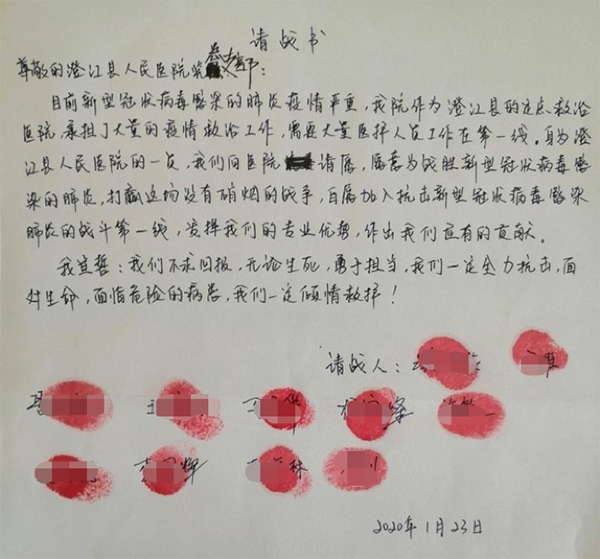 请战书
尊敬的澄江县人民医院党委支部：
目前新型冠状病毒感染的肺炎疫情严重，我院作为澄江县的定点救治
医院，承担了大量的疫情救治工作，需要大量医护人员工作在第一线。身为澄
江县人民医院的一员，我们向医院请愿，愿意为战胜新型冠状病毒感
染的肺炎，打赢这场没有硝烟的战争，自愿加入抗击新型冠状病毒感染
肺炎的战斗第一线，发挥我们的专业优势，作出我们应有的贡献。
我宣誓：我们不求回报，无论生死，勇于担当，我们一定全力抗击，面
对生命，面临危险的病患，我们一定倾情救护！
请战人：
2020年1月23日